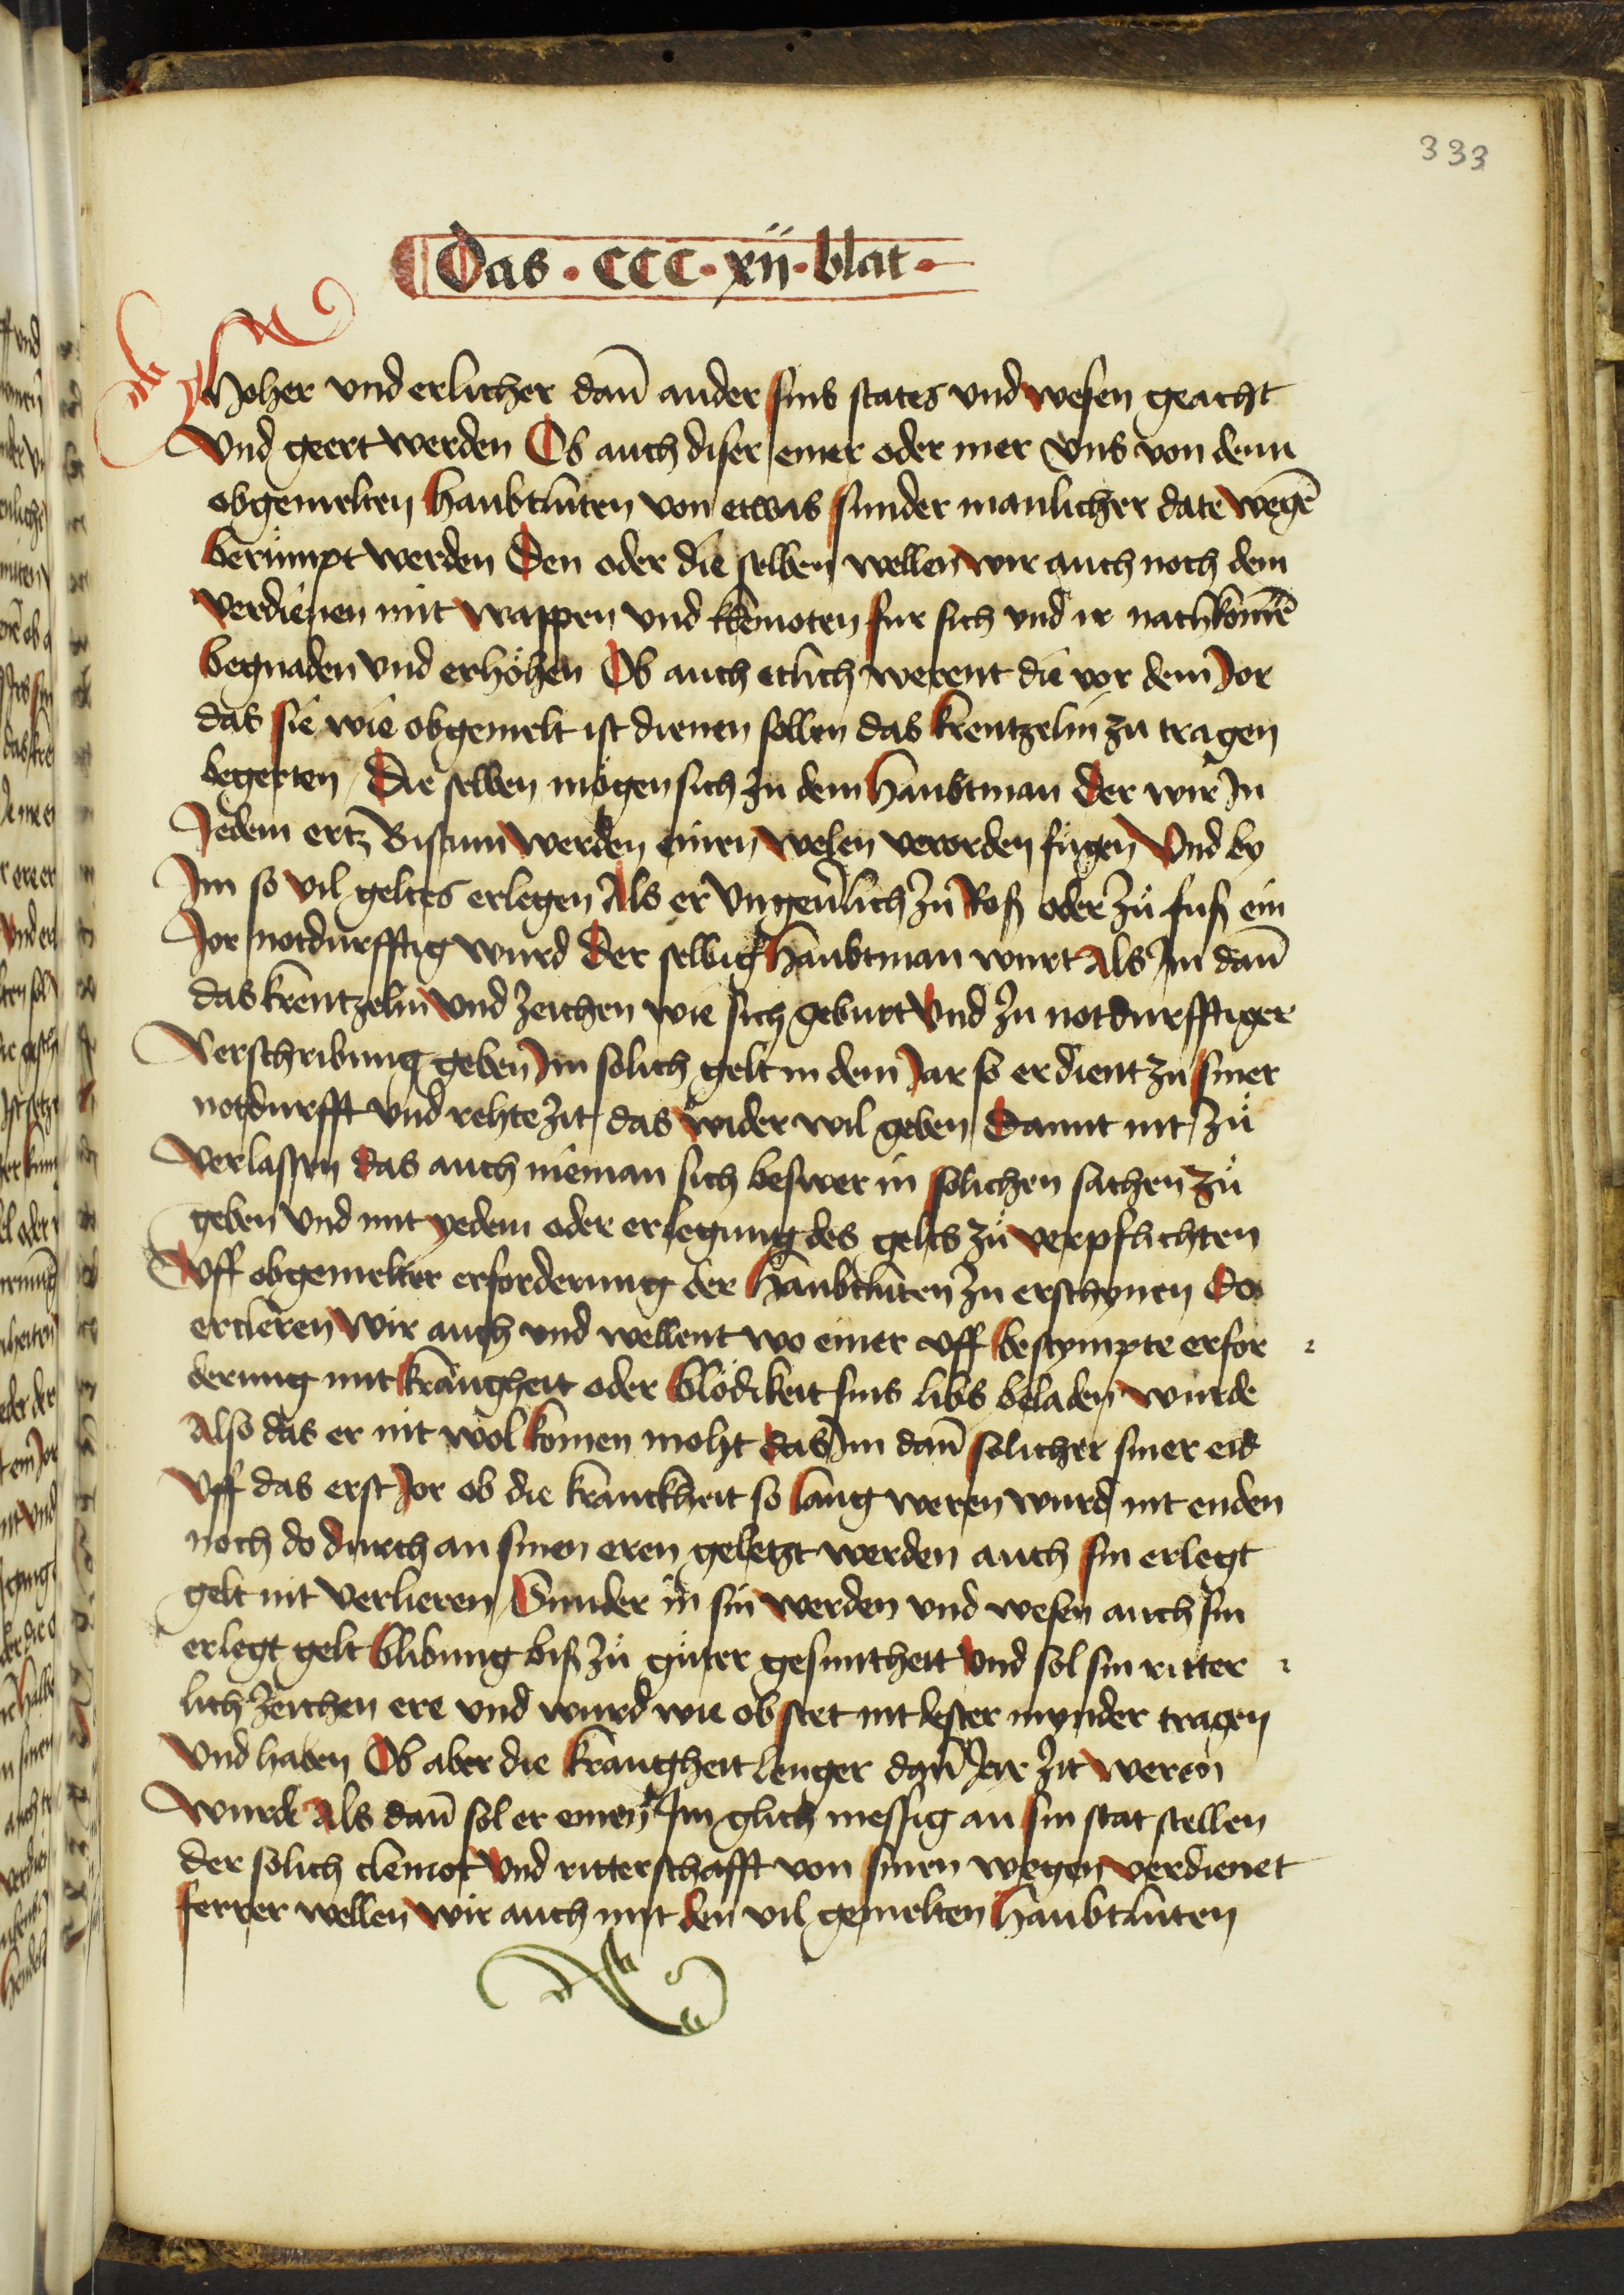 333
Das · CCC · xii · blat ·
Hoher vnd erlicher dan̄ ander sins states vnd wesen geacht
Vnd geert werden Ob auch diser einer oder mer vns von denn
obgemelten haubtluten von etwas sunder manlicher date wegē
berümpt werden Den oder die selben wellen wir auch noch dem
verdienen mit wappen vnd klenoten fur sich vnd ir nachkomē
begnaden vnd erhöhen Ob auch etlich werent die vor dem Jor
das sie wie obgemelt ist dienen sollen das krentzelin zu tragen
begerten / Die selben mögen sich zu dem haubtman der wir In
Jedem ertz Bistum werden einen welen verorden fügen Vnd by
Im so vil geltes erlegen Als er Vngeverlich zů Roß oder zů fuß ein
Jor notdurfftig wurd Der selbig haubtman wurt Als Im dan̄
das krentzelin vnd zeichen wie sich geburt Vnd zu notdurfftiger
Verschribung geben Im solich gelt in dem Jar so er dient zu siner
notdurfft vnd rehte zit das wider wil geben Damit nit zů
verlassen das auch nieman sich beswer in solichen sachen zů
geben Vnd mit yedem oder erlegung des gelts zů verpflichten
Vff obgemelter erforderung der haubtluten zu erschynen Do
ercleren wir auch vnd wellent wo einer vff bestympte erfor
derung mit krangheit oder blödikeit sins libs beladen wurde
Also das er nit wol komen moht das Im dan̄ solicher siner eid
Vff das erst Jor ob die kranckheit so lang weren wurd nit enden
noch do durch an sinen eren geletzt werden auch sin erlegt
gelt nit verlieren Sunder in sin werden vnd wesen auch sin
erlegt gelt blibung biß zů gůter gesuntheit Vnd sol sin ritter
lich zeichen ere vnd wurd wie ob stet nit dester mynder tragen
Vnd haben Ob aber die krangheit lenger dan̄ Jar zit weren
wurde Als dan̄ sol er einen Im glich messig an sin stat stellen
der solich clenot Vnd ritterschafft von sinen wegen verdienet
ferrer wellen wir auch mit den vil gemelten haubtluten